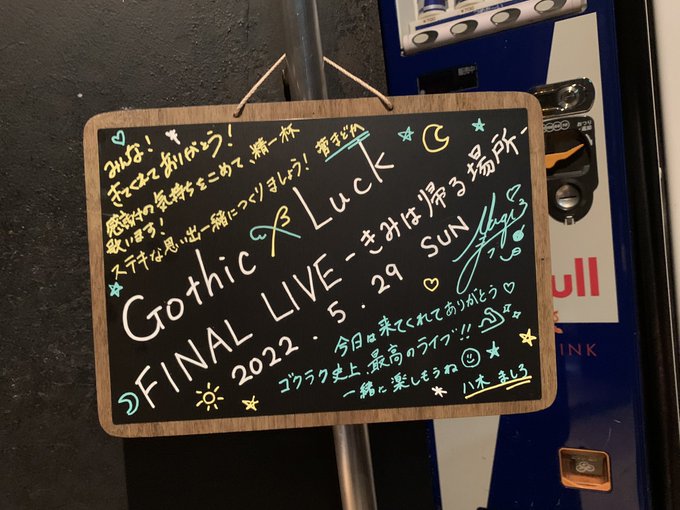 みんな!
きてくれてありがとう!
感謝の気持ちをこめて、精一杯
歌います!
ステキな思い出一緒につくりましょう!
菅まどか
Gothic × Luck
FINAL LIVE -きみは帰る場所-
2022.5.29 SUN
今日は来てくれてありがとう
ゴクラク史上、最高のライブ!!
一緒に楽しもうね
八木 ましろ
ull
INK